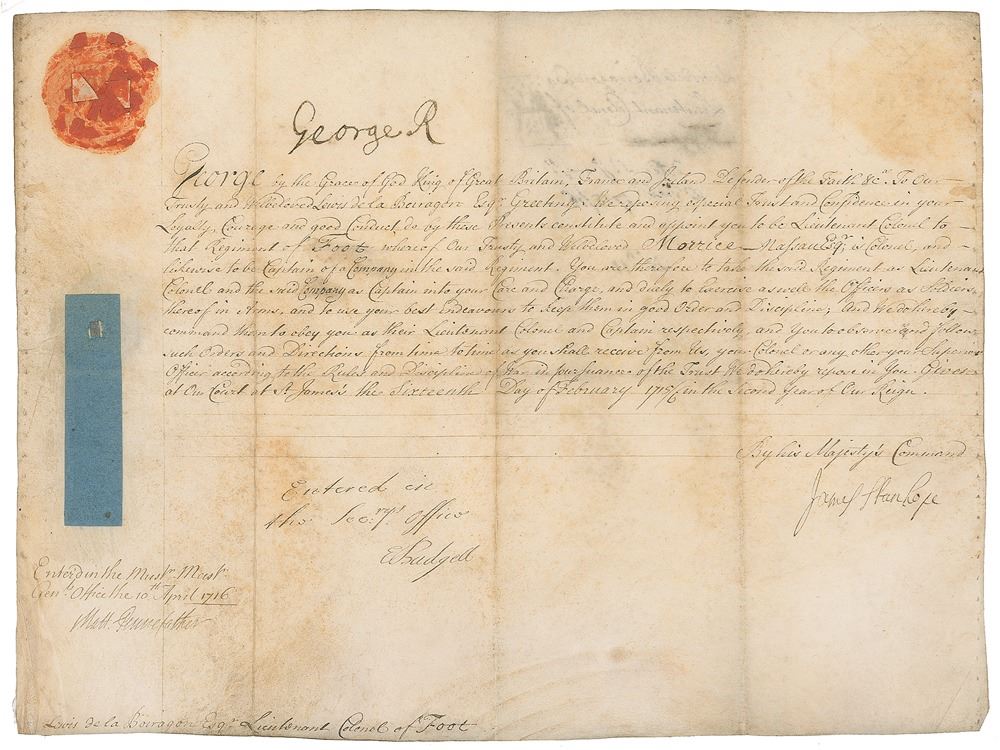 George R
George by the Grace of God King of Great Britain, France and Ireland Defender of the Faith &c.ᵃ To Our
Trusty and Wellbeloved Lewis de la Boiragon Esqʳ. Greeting: We reposing especial Trust and Confidence in your
Loyalty, Courage and good Conduct, do by these Presents constitute and appoint you to be Lieutenant Colonel to
that Regiment of Foot whereof Our Trusty and Wellbeloved Morrice Nassau Esqʳ, is Colonel, and
likewise to be Captain of a Company in the said Regiment. You are therefore to take the said Regiment as Lieutenant
Colonel and the said Company as Captain into your Care and Charge, and duely to Exercise as well the Officers as Soldiers
thereof in Arms, and to use your best Endeavours to keep them in good Order and Discipline; And We do hereby
command them to obey you as their Lieutenant Colonel and Captain respectively, and You to observe and follow
such Orders and Directions from time to time as you shall receive from Us, your Colonel or any other your Superior
Officer according to the Rules and Discipline of War in pursuance of the Trust We do hereby repose in You. Given
at Our Court at St. James's the Sixteenth Day of February 1715/6 in the Second Year of Our Reign.
By his Majesty's Command
James Stanhope
Entered in
the Secʳʸˢ. Office
EBudgell
Enterd in the Mustʳ. Mastʳ
Genˡˢ. Office the 10ᵗʰ April 1716
Matt. Pennefather
Lewis de la Boiragon Esqʳ Lieutenant Colonel of Foot